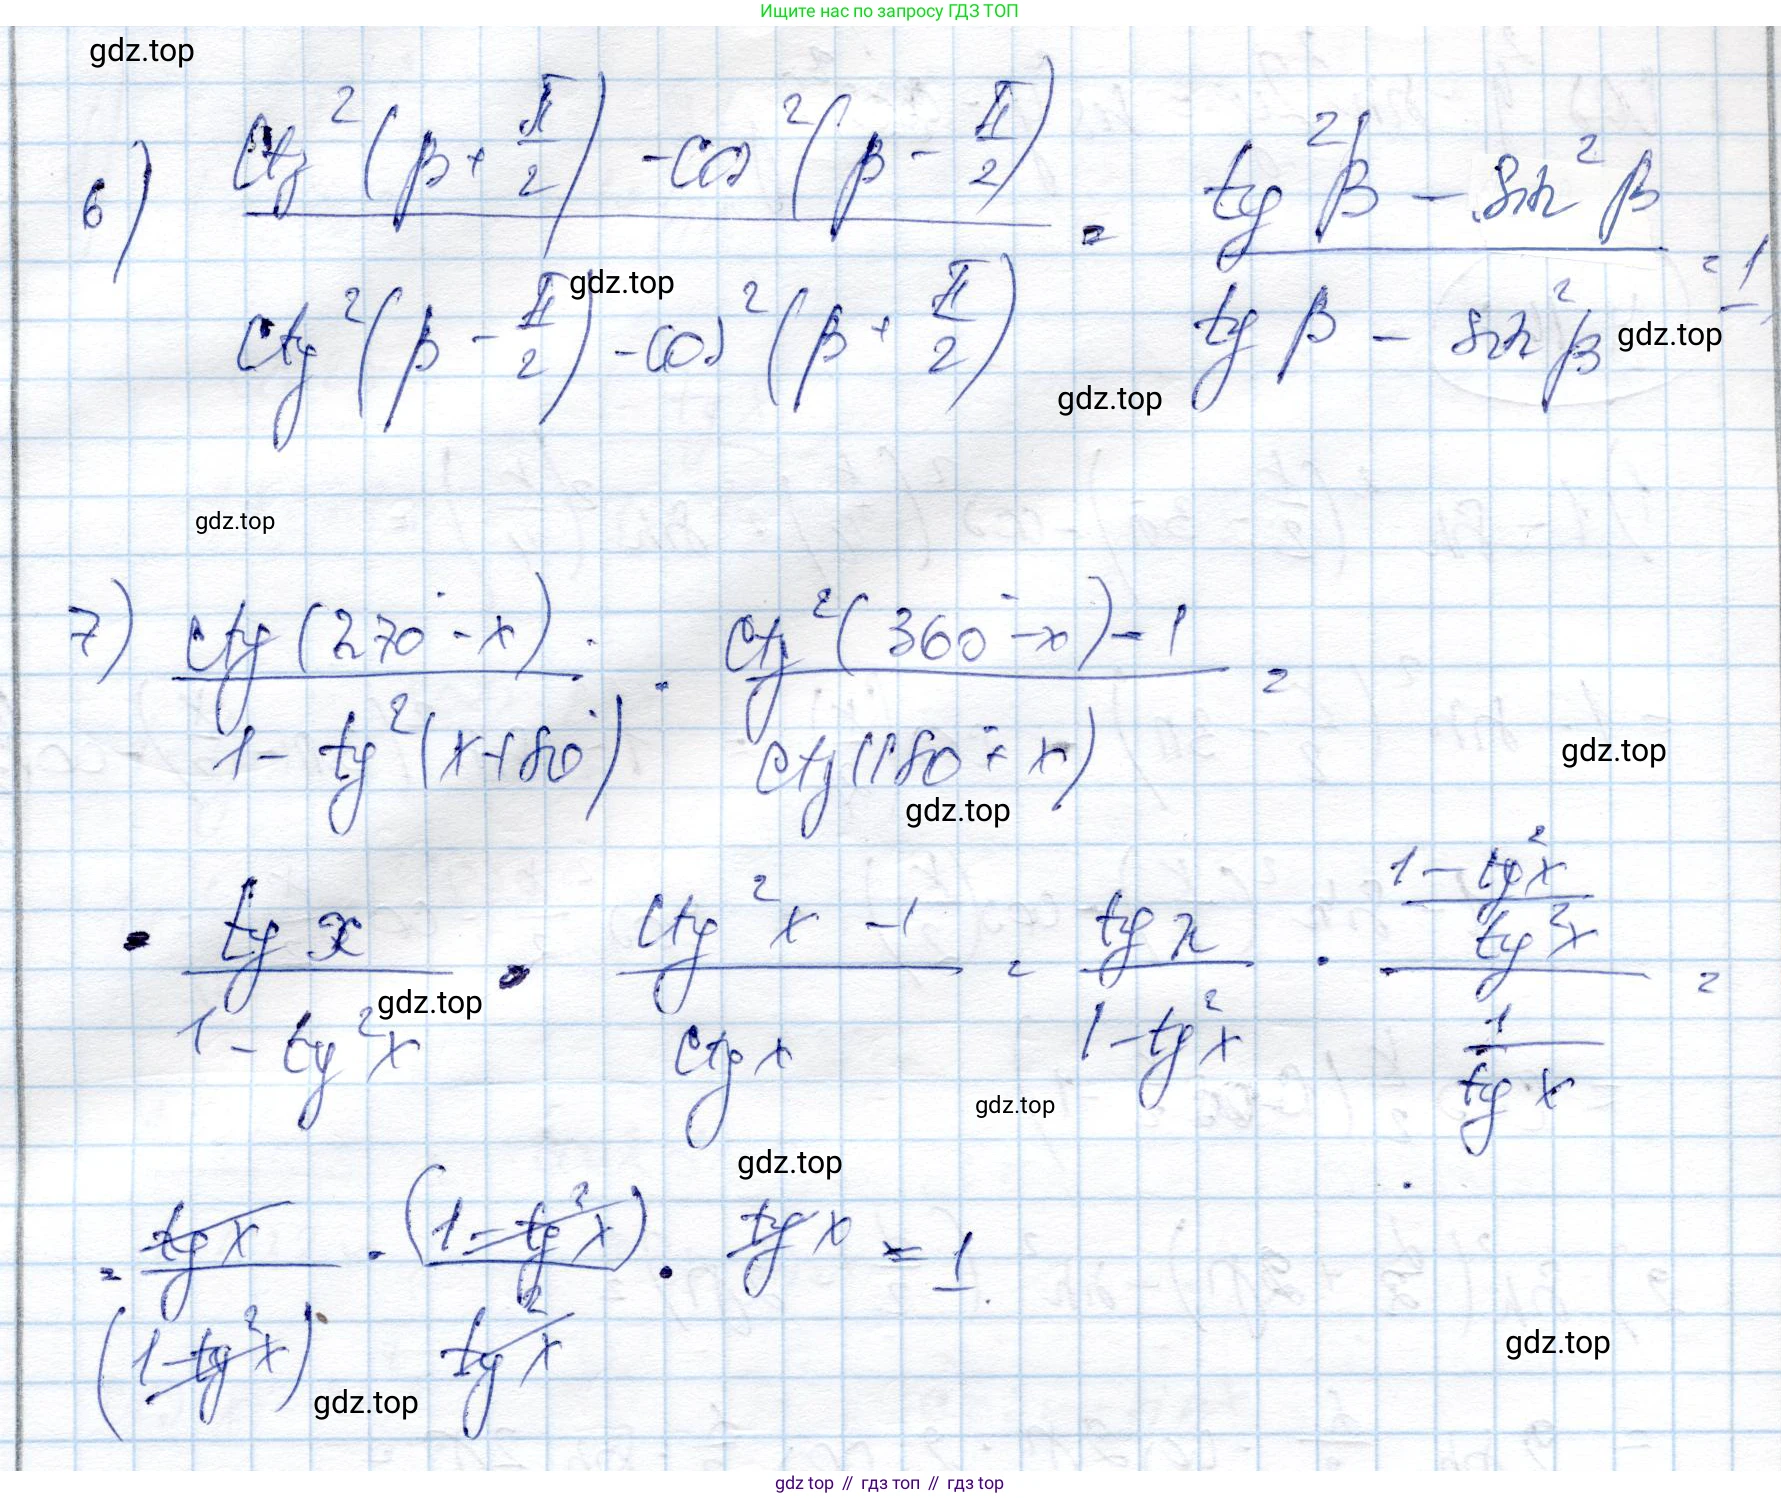 Ищите нас по запросу ГДЗ ТОП
gdz.top
6) (ctg²(β + π/2) - cos²(β - π/2)) / (ctg²(β - π/2) - cos²(β + π/2)) = (tg²β - sin²β) / (tg β - sin²β) = 1
gdz.top
gdz.top
gdz.top
gdz.top
7) ctg(270° - x) / (1 - tg²(x + 180°)) · (ctg²(360° - x) - 1) / ctg(180° + x) =
gdz.top
gdz.top
= tg x / (1 - tg²x) · (ctg²x - 1) / ctg x = tg x / (1 - tg²x) · ((1 - tg²x) / tg²x) / (1 / tg x) =
gdz.top
gdz.top
gdz.top
= tg x / (1 - tg²x) · (1 - tg²x) / tg²x · tg x = 1.
gdz.top
gdz.top
gdz top // гдз топ // гдз top